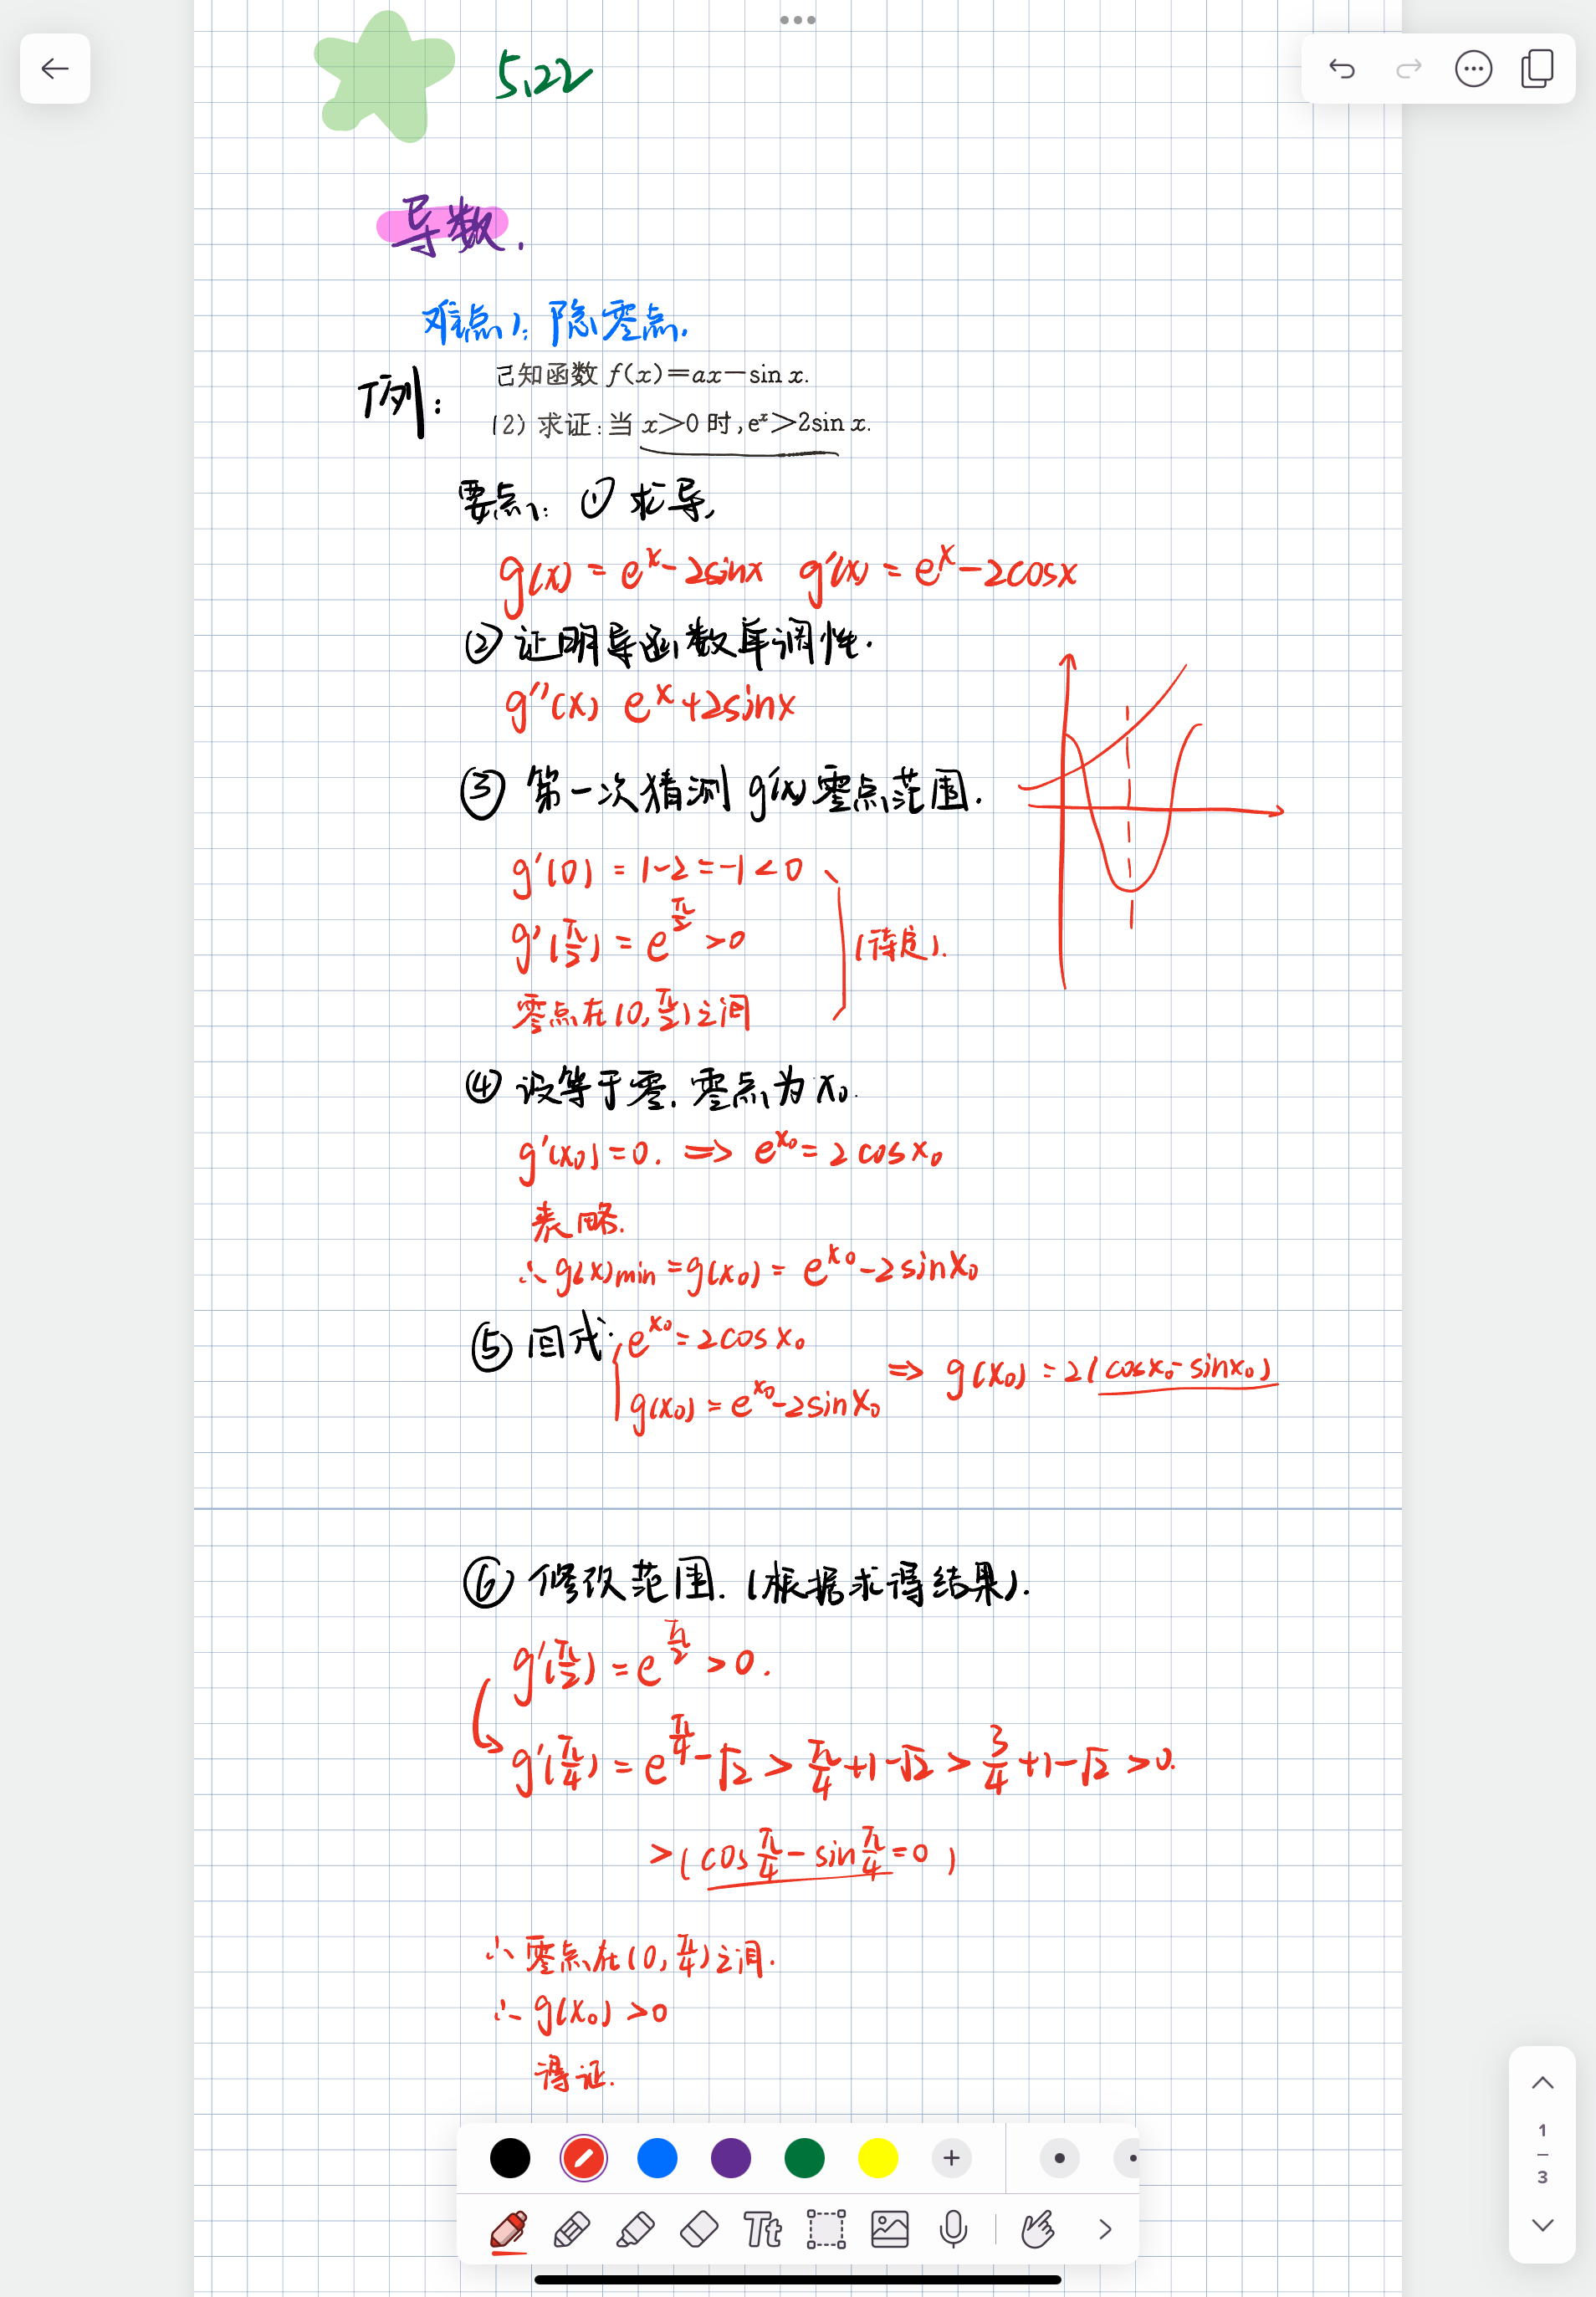 5.22
导数.
难点1: 隐零点.
例:
已知函数 f(x)=ax-sin x.
(2) 求证:当 x>0 时,eˣ>2sin x.
要点1: ① 求导,
g(x) = eˣ-2sinx g'(x) = eˣ-2cosx
② 证明导函数单调性.
g''(x) eˣ+2sinx
③ 第一次猜测 g'(x) 零点范围.
g'(0) = 1-2=-1<0
g'(π/2) = e^(π/2) >0
(待定).
零点在(0,π/2)之间
④ 设等于零.零点为x₀.
g'(x₀)=0. ⇒ e^(x₀)=2cosx₀
表略.
∴g(x)min=g(x₀)= e^(x₀)-2sinx₀
⑤ 回代:
e^(x₀)=2cosx₀
g(x₀)=e^(x₀)-2sinx₀ ⇒ g(x₀)=2(cosx₀-sinx₀)
⑥ 修改范围.(根据求得结果).
g'(π/2)=e^(π/2)>0.
g'(π/4)=e^(π/4)-√2>π/4+1-√2>3/4+1-√2>0.
>(cosπ/4-sinπ/4=0)
∴零点在(0,π/4)之间.
∴g(x₀)>0
得证.
Tt
1
3